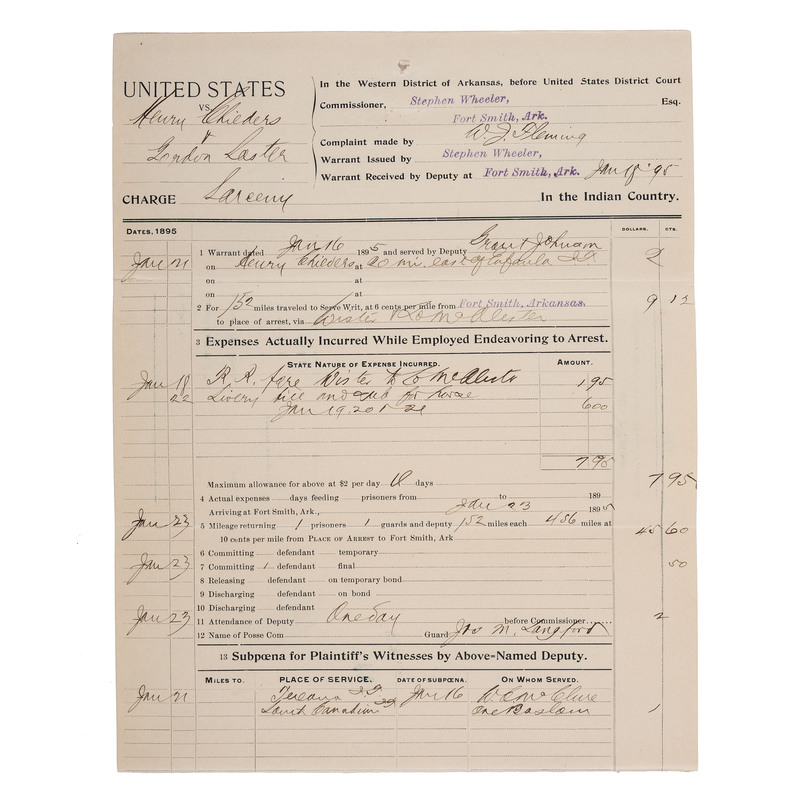 UNITED STATES
vs.
Henry Chieders
&
London Laster
CHARGE Larceny
In the Western District of Arkansas, before United States District Court
Commissioner, Stephen Wheeler, Esq.
Fort Smith, Ark.
Complaint made by W. J. Fleming
Warrant Issued by Stephen Wheeler,
Warrant Received by Deputy at Fort Smith, Ark. Jan 18 '95
In the Indian Country.
DATES, 1895 DOLLARS. CTS.
1 Warrant dated Jan 16 1895 and served by Deputy Grant Johnson
Jan 21 on Henry Chieders at 20 mi. east of Eufaula I.T. 2
on at
on at
2 For 152 miles traveled to Serve Writ, at 6 cents per mile from Fort Smith, Arkansas. 9 12
to place of arrest, via Wister & So McAlester
3 Expenses Actually Incurred While Employed Endeavoring to Arrest.
STATE NATURE OF EXPENSE INCURRED. AMOUNT.
Jan 18 R. R. fare Wister to So McAlester 1.95
22 Livery hire and feed for horse 600
Jan 19 20 & 21
7 95
Maximum allowance for above at $2 per day days 7 95
4 Actual expenses days feeding prisoners from to 189
Arriving at Fort Smith, Ark., Jan 23 1895
Jan 23 5 Mileage returning 1 prisoners 1 guards and deputy 152 miles each 456 miles at
10 cents per mile from PLACE OF ARREST to Fort Smith, Ark 45 60
6 Committing defendant temporary
Jan 23 7 Committing 1 defendant final 50
8 Releasing defendant on temporary bond
9 Discharging defendant on bond
10 Discharging defendant
Jan 23 11 Attendance of Deputy One day before Commissioner 2
12 Name of Posse Com Guard Jno M. Langford
13 Subpœna for Plaintiff's Witnesses by Above-Named Deputy.
MILES TO. PLACE OF SERVICE. DATE OF SUBPŒNA. ON WHOM SERVED.
Jan 21 I.T. Jan 16 W. C. McClure
South Canadian I.T. 1